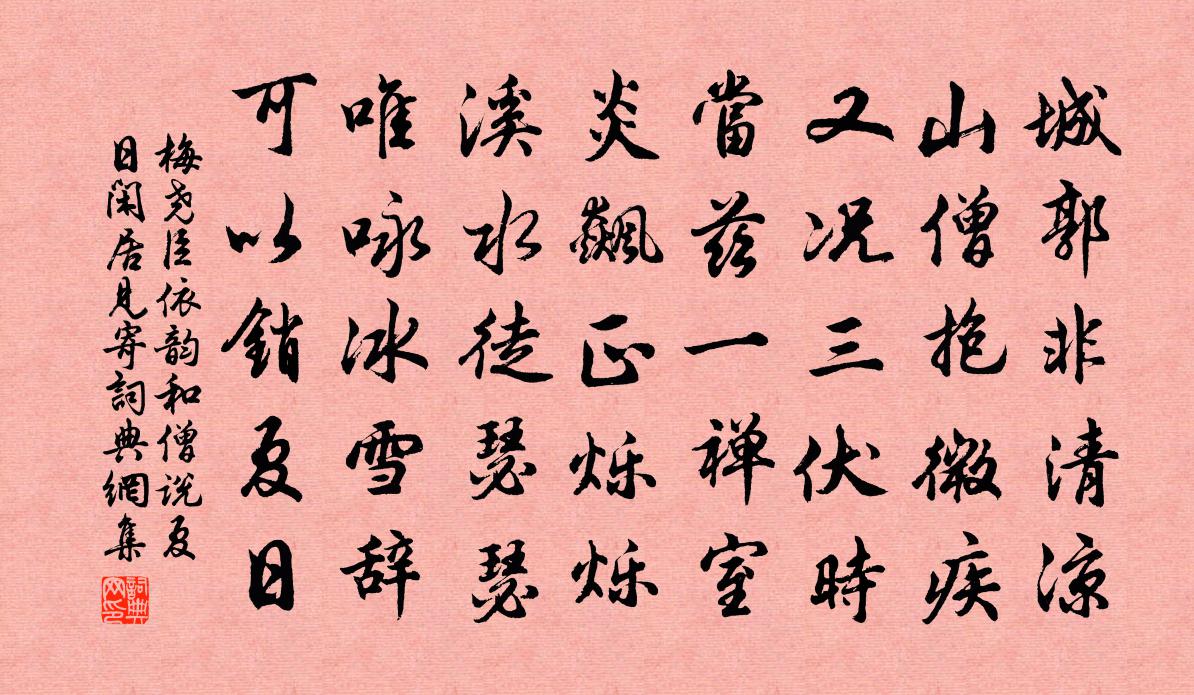 城郭非清凉
山僧抱微疾
又况三伏時
當兹一禅室
炎飊正烁烁
溪水徒瑟瑟
唯咏冰雪辞
可以銷夏日
梅尧臣依韵和僧说夏
日闲居見寄詞典網集
詞典网印